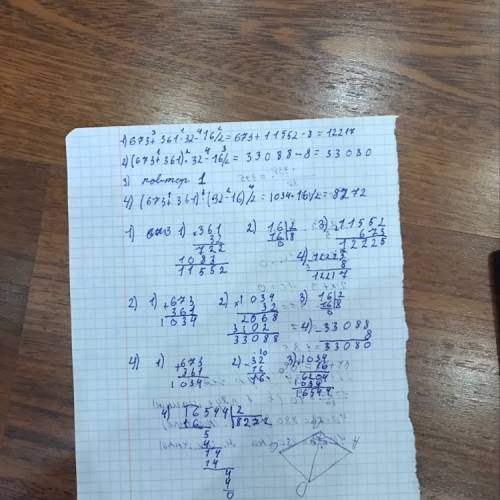 1) 673+361·32-16/2=673+11552-8=12217
2) (673+361)·32-16/2=33088-8=33080
3) повтор 1
4) (673+361)·(32-16)/2=1034·16/2=8272
1) 1) ×361 2) 16|2 3) +11552
32 16|8 673
722 0 12225
1083 4) -12225
11552 8
12217
2) 1) +673 2) ×1034 3) 16|2
361 32 16|8
1034 2068 0
3102 4) -33088
33088 8
33080
4) 1) +673 2) -32 3) ×1034
361 16 16
1034 16 6204
1034
16544
4) 16544|2
16 |8272
5
4
14
14
4
4
0